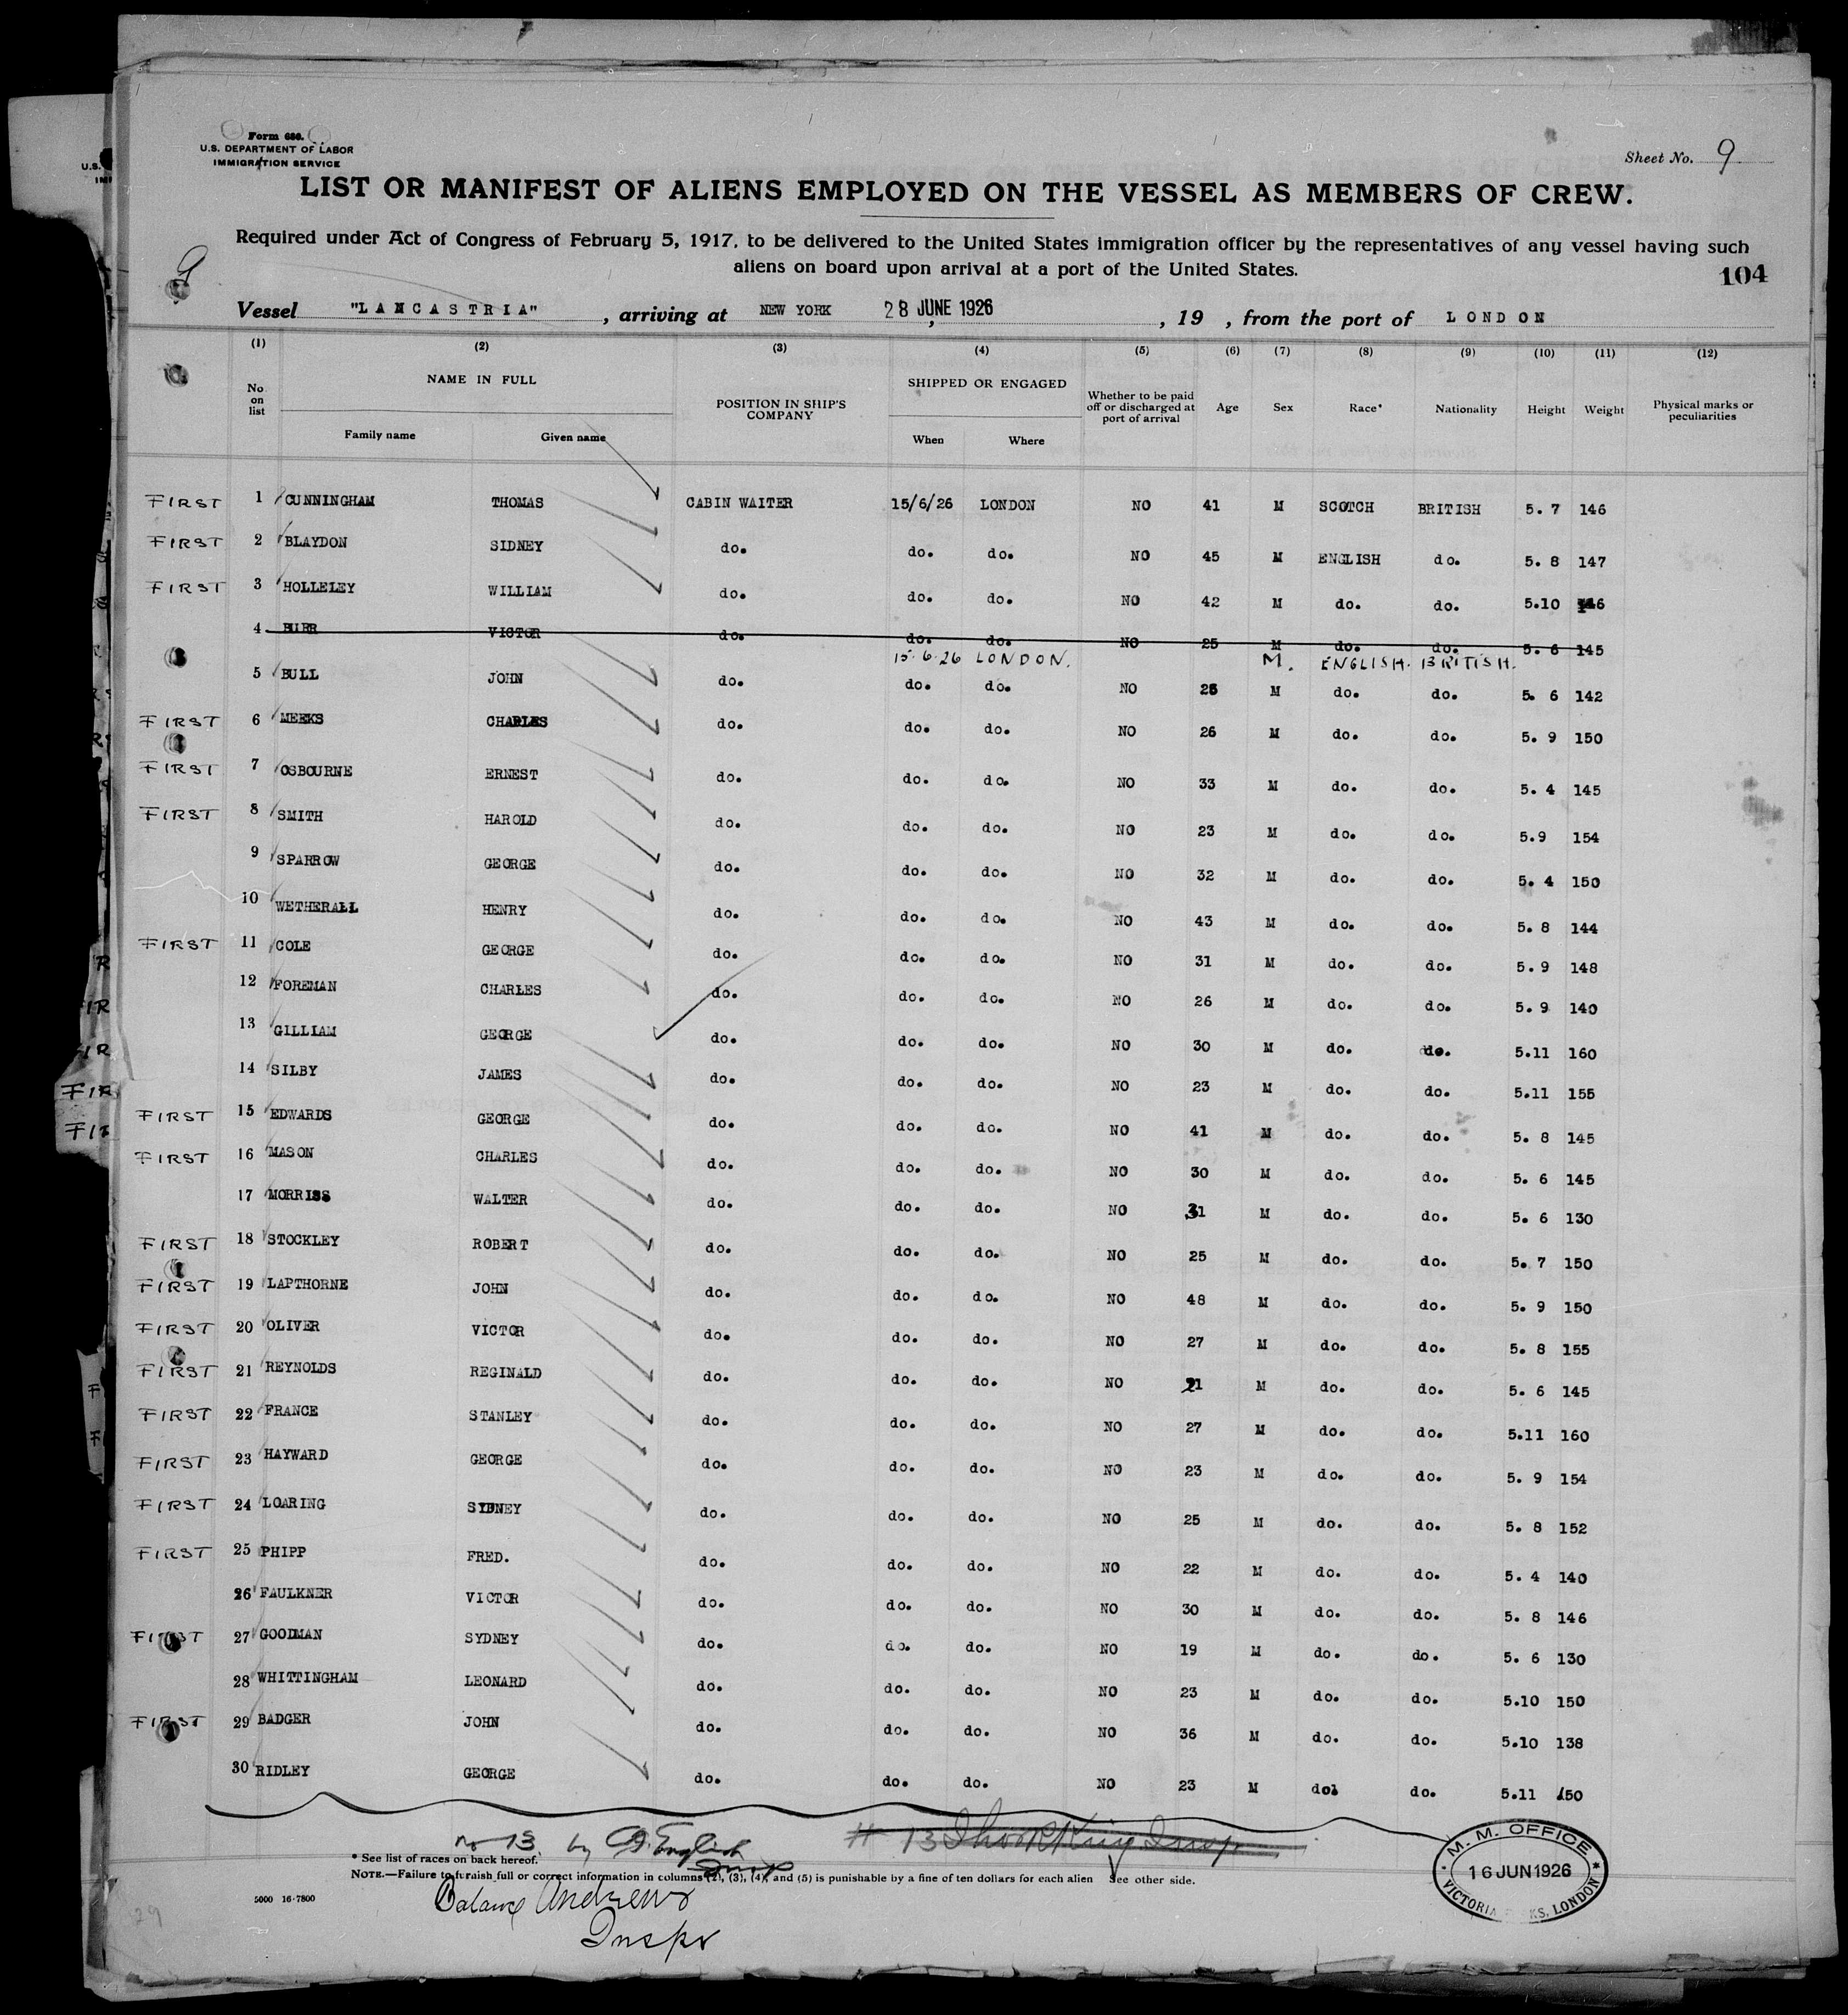 Form 680.
U.S. DEPARTMENT OF LABOR
IMMIGRATION SERVICE
Sheet No. 9
LIST OR MANIFEST OF ALIENS EMPLOYED ON THE VESSEL AS MEMBERS OF CREW.
Required under Act of Congress of February 5, 1917, to be delivered to the United States immigration officer by the representatives of any vessel having such
aliens on board upon arrival at a port of the United States.
104
9
Vessel "LANCASTRIA", arriving at NEW YORK 28 JUNE 1926, 19 , from the port of LONDON
(1) (2) (3) (4) (5) (6) (7) (8) (9) (10) (11) (12)
No. on list NAME IN FULL Family name Given name POSITION IN SHIP'S COMPANY SHIPPED OR ENGAGED When Where Whether to be paid off or discharged at port of arrival Age Sex Race* Nationality Height Weight Physical marks or peculiarities
FIRST 1 CUNNINGHAM THOMAS CABIN WAITER 15/6/26 LONDON NO 41 M SCOTCH BRITISH 5. 7 146
FIRST 2 BLAYDON SIDNEY do. do. do. NO 45 M ENGLISH do. 5. 8 147
FIRST 3 HOLLELEY WILLIAM do. do. do. NO 42 M do. do. 5.10 146
4 BURR VICTOR do. do. do. NO 25 M do. do. 5. 6 145
15.6.26 LONDON. M. ENGLISH. BRITISH.
5 BULL JOHN do. do. do. NO 26 M do. do. 5. 6 142
FIRST 6 MEEKS CHARLES do. do. do. NO 26 M do. do. 5. 9 150
FIRST 7 OSBOURNE ERNEST do. do. do. NO 33 M do. do. 5. 4 145
FIRST 8 SMITH HAROLD do. do. do. NO 23 M do. do. 5.9 154
9 SPARROW GEORGE do. do. do. NO 32 M do. do. 5. 4 150
10 WETHERALL HENRY do. do. do. NO 43 M do. do. 5. 8 144
FIRST 11 COLE GEORGE do. do. do. NO 31 M do. do. 5. 9 148
12 FOREMAN CHARLES do. do. do. NO 26 M do. do. 5. 9 140
13 GILLIAM GEORGE do. do. do. NO 30 M do. do. 5.11 160
14 SILBY JAMES do. do. do. NO 23 M do. do. 5.11 155
FIRST 15 EDWARDS GEORGE do. do. do. NO 41 M do. do. 5. 8 145
FIRST 16 MASON CHARLES do. do. do. NO 30 M do. do. 5. 6 145
17 MORRISS WALTER do. do. do. NO 31 M do. do. 5. 6 130
FIRST 18 STOCKLEY ROBERT do. do. do. NO 25 M do. do. 5. 7 150
FIRST 19 LAPTHORNE JOHN do. do. do. NO 48 M do. do. 5. 9 150
FIRST 20 OLIVER VICTOR do. do. do. NO 27 M do. do. 5. 8 155
FIRST 21 REYNOLDS REGINALD do. do. do. NO 21 M do. do. 5. 6 145
FIRST 22 FRANCE STANLEY do. do. do. NO 27 M do. do. 5.11 160
FIRST 23 HAYWARD GEORGE do. do. do. NO 23 M do. do. 5. 9 154
FIRST 24 LOARING SYDNEY do. do. do. NO 25 M do. do. 5. 8 152
FIRST 25 PHIPP FRED. do. do. do. NO 22 M do. do. 5. 4 140
26 FAULKNER VICTOR do. do. do. NO 30 M do. do. 5. 8 146
FIRST 27 GOODMAN SYDNEY do. do. do. NO 19 M do. do. 5. 6 130
28 WHITTINGHAM LEONARD do. do. do. NO 23 M do. do. 5.10 150
FIRST 29 BADGER JOHN do. do. do. NO 36 M do. do. 5.10 138
30 RIDLEY GEORGE do. do. do. NO 23 M do. do. 5.11 150
no 13 by English Insp
# 13 Insp
* See list of races on back hereof.
NOTE.—Failure to furnish full or correct information in columns (2), (3), (4), and (5) is punishable by a fine of ten dollars for each alien See other side.
5000 16-7800
Balance Andrews
Inspr
29
M. M. OFFICE
16 JUN 1926
VICTORIA KS, LONDON